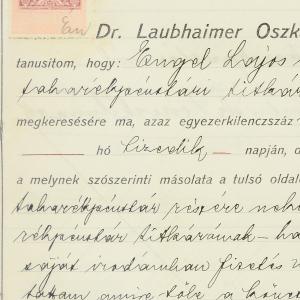 En Dr. Laubhaimer Oszk
tanusitom, hogy: Engel Lajos
takarékpénztári titkár
megkeresésére ma, azaz egyezerkilencszáz
hó tizedik napján, d
a melynek szószerinti másolata a tulsó oldal
takarékpénztár részére
rékpénztár titkárának - ha
saját irodámban fizetés